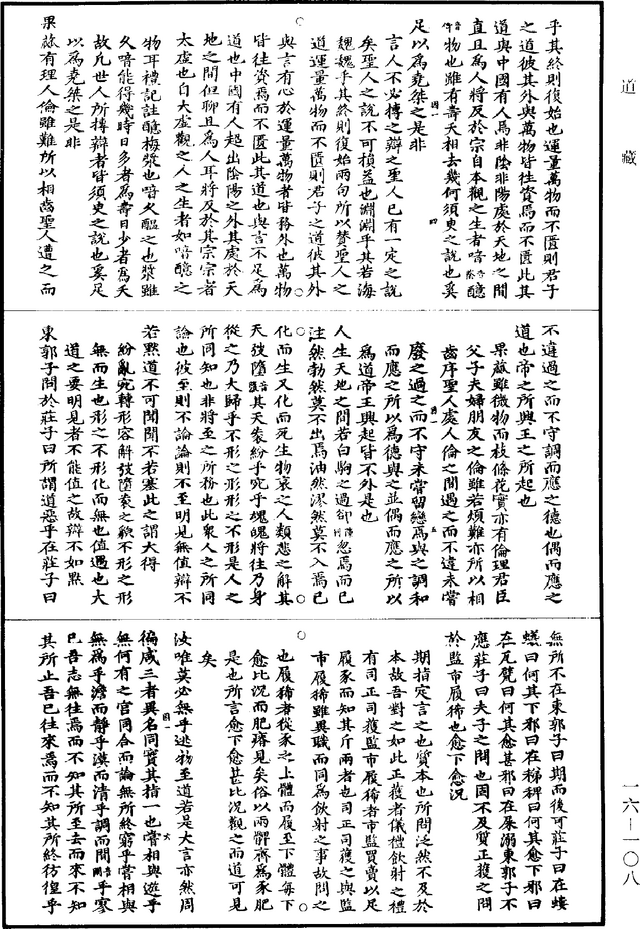 道藏
乎其終則復始也運量萬物而不匱則君子
之道彼其外與萬物皆往資焉而不匱此其
道與中國有人焉非陰非陽處於天地之間
直且為人將反於宗自本觀之生者喑醷
物也雖有壽夭相去幾何須臾之說也奚
足以為堯桀之是非
言人不必摶之辯之聖人已有一定之說
矣聖人之說不可損益也淵淵乎其若海
魏魏乎其終則復始兩句所以贊聖人之
道運量萬物而不匱則君子之道彼其外
與言有心於運量萬物者皆務外也萬物
皆往資焉而不匱此其道也與言不足為
道也中國有人超出陰陽之外其處於天
地之間但聊且為人耳將反於其宗宗者
太虛也自大虛觀之人之生者如喑醷之
物耳禮記註醷梅漿也喑久醞之也漿雖
久喑能得幾時日多者為壽日少者為夭
故凡世人所摶辯者皆須臾之說也奚足
以為堯桀之是非
果蓏有理人倫雖難所以相齒聖人遭之而
不違過之而不守調而應之德也偶而應之
道也帝之所興王之所起也
果蓏雖微物而枝條花實亦有倫理君臣
父子夫婦朋友之倫雖若煩難亦所以相
齒序聖人處人倫之間遇之而不違未嘗
廢之過之而不守未嘗留戀焉與之調和
而應之所以為德與之並偶而應之所以
為道帝王興起皆不外是也
人生天地之間若白駒之過郤忽焉而已
注然勃然莫不出焉油然漻然莫不入焉已
化而生又化而死生物哀之人類悲之解其
天弢墮其天袠紛乎宛乎魂魄將往乃身
從之乃大歸乎不形之形形之不形是人之
所同知也非將至之所務也此衆人之所同
論也彼至則不論論則不至明見無值辯不
若默道不可聞聞不若塞此之謂大得
紛亂宛轉形容解弢墮袠之歀不形之形
無而生也形之不形化而無也值遇也大
道之要明見者不能值之故辯不如默
東郭子問於莊子曰所謂道惡乎在莊子曰
無所不在東郭子曰期而後可莊子曰在螻
蟻曰何其下邪曰在稊稗曰何其愈下邪曰
在瓦甓曰何其愈甚邪曰在屎溺東郭子不
應莊子曰夫子之問也固不及質正獲之問
於監市履狶也愈下愈況
期指定言之也質本也所問泛然不及於
本故吾對之如此正獲者儀禮飲射之禮
有司正司獲監市履狶者市監買賣以足
履豕而知其斤兩者也司正司獲之與監
市履狶雖異職而同為飲射之事故問之
也履狶者從豕之上體而履至下體每下
愈比況而肥瘠見矣俗以兩髀齊為豕肥
是也所言愈下愈甚比況觀之而道可見
矣
汝唯莫必無乎逃物至道若是大言亦然周
徧咸三者異名同實其指一也嘗相與遊乎
無何有之宮同合而論無所終窮乎嘗相與
無為乎澹而靜乎漠而清乎調而閒乎寥
已吾志無往焉而不知其所至去而來不知
其所止吾已往來焉而不知其所終彷徨乎
一六—一〇八